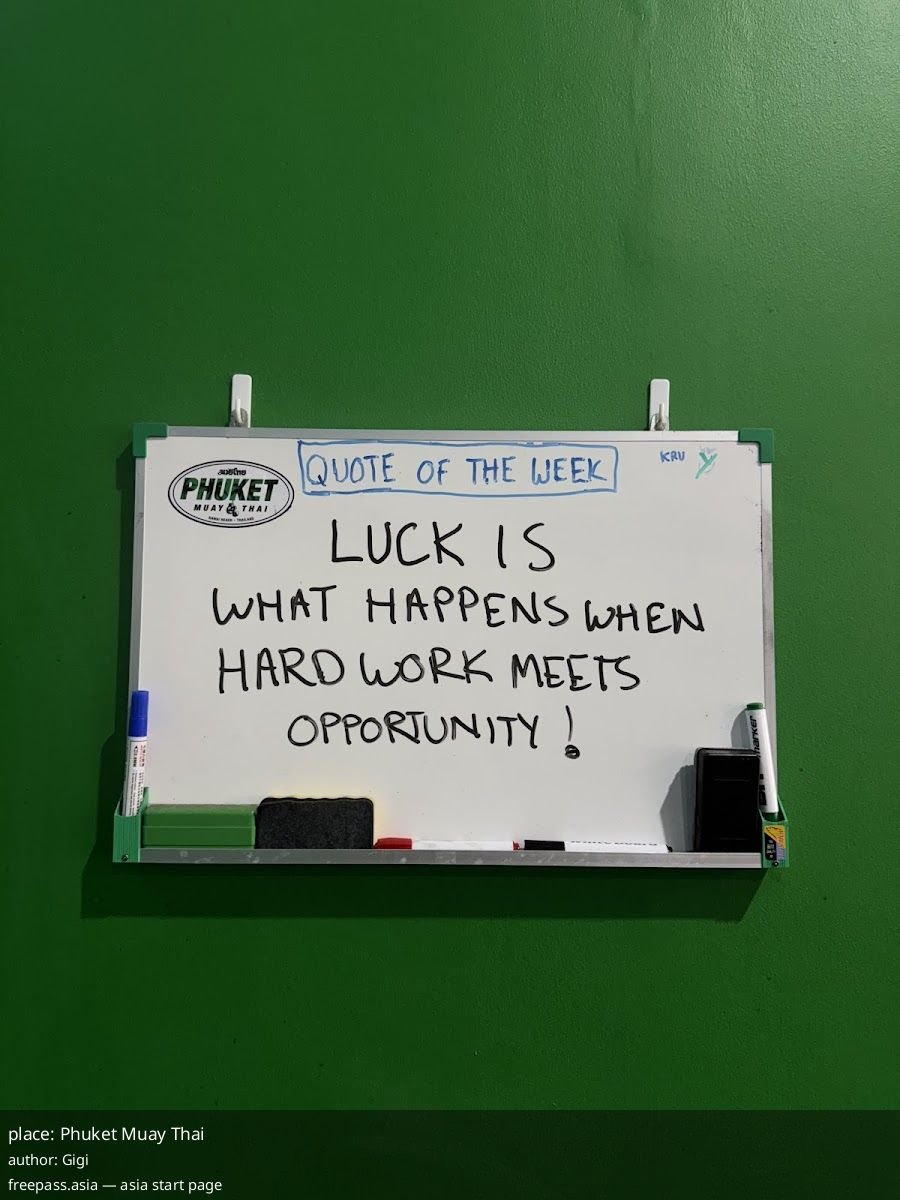 QUOTE OF THE WEEK
KRU
มวยไทย
PHUKET
MUAY THAI
RAWAI BEACH - THAILAND
LUCK IS
WHAT HAPPENS WHEN
HARD WORK MEETS
OPPORTUNITY!
marker
place: Phuket Muay Thai
author: Gigi
freepass.asia — asia start page